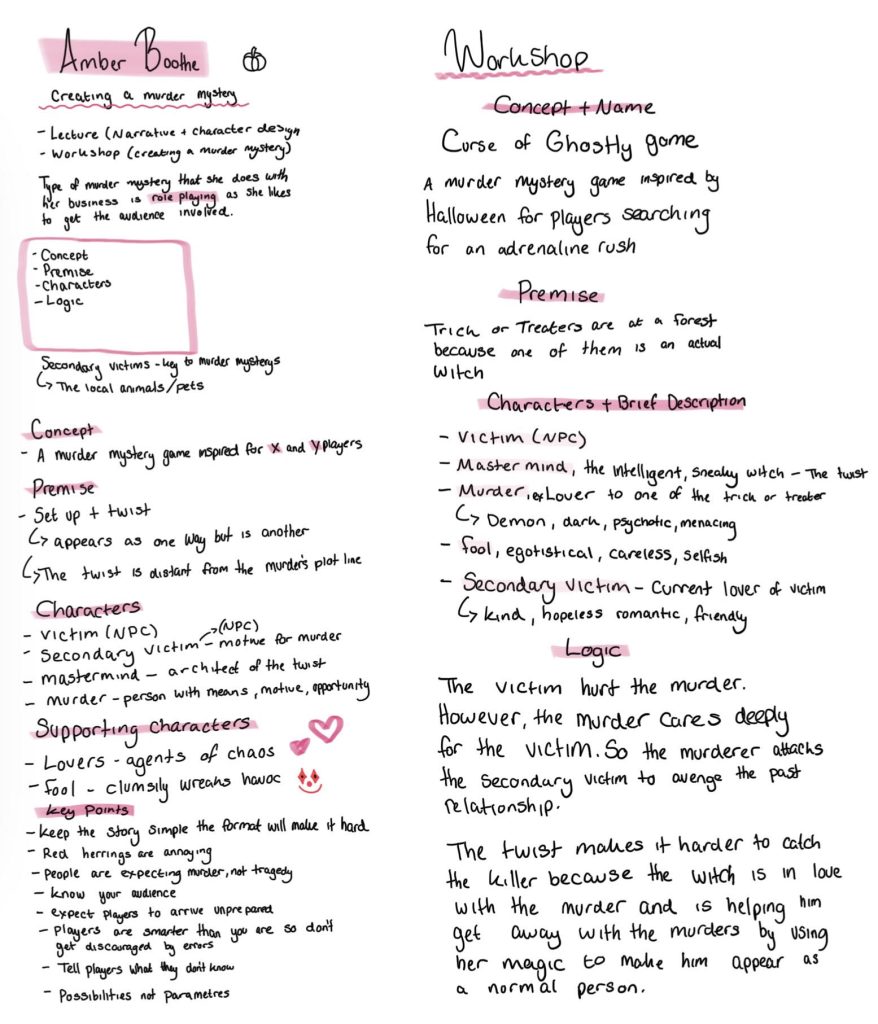 Amber Boothe
Creating a murder mystery
- Lecture (Narrative + character design
- Workshop (creating a murder mystery)
Type of murder mystery that she does with
her business is role playing as she likes
to get the audience involved.
- Concept
- Premise
- Characters
- Logic
Secondary victims - key to murder mysterys
↳ The local animals/pets
Concept
- A murder mystery game inspired for X and Y players
Premise
- Set up + twist
↳ appears as one way but is another
↳ The twist is distant from the murder's plot line
Characters
- Victim (NPC)
- Secondary victim → (NPC) - motive for murder
- mastermind - architect of the twist
- murder - person with means, motive, opportunity
Supporting Characters
- Lovers - agents of chaos
- Fool - clumsily wreaks havoc
Key Points
- Keep the story simple the format will make it hard
- Red herrings are annoying
- People are expecting murder, not tragedy
- Know your audience
- expect players to arrive unprepared
- Players are smarter than you are so don't
get discouraged by errors
- Tell players what they don't know
- Possibilities not parametres
Workshop
Concept + Name
Curse of Ghostly game
A murder mystery game inspired by
Halloween for players searching
for an adrenaline rush
Premise
Trick or Treaters are at a forest
because one of them is an actual
witch
Characters + Brief Description
- Victim (NPC)
- Master mind, the intelligent, sneaky witch - The twist
- Murder, ex Lover to one of the trick or treater
↳ Demon, dark, psychotic, menacing
- Fool, egotistical, careless, selfish
- Secondary victim - Current lover of victim
↳ kind, hopeless romantic, friendly
Logic
The victim hurt the murder.
However, the murder cares deeply
for the victim. So the murderer attacks
the secondary victim to avenge the past
relationship.
The twist makes it harder to catch
the killer because the witch is in love
with the murder and is helping him
get away with the murders by using
her magic to make him appear as
a normal person.